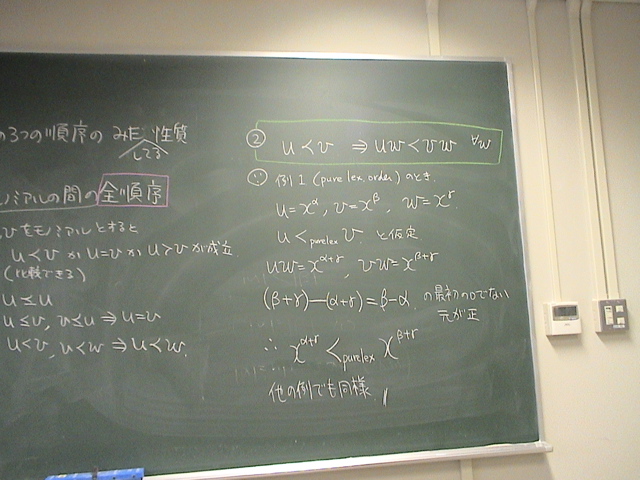 の3つの順序の みたす 性質
してる
モノミアルの間の全順序
u,vをモノミアルとすると
u<v か u=v か u>v が成立
(比較できる)
u≤u
u≤v, v≤u ⇒ u=v
u<v, v<w ⇒ u<w.
② u<v ⇒ uw<vw ∀w
∵ 例1 (pure lex. order) のとき.
u=x^α, v=x^β, w=x^γ.
u <purelex v. と仮定
uw=x^{α+γ}, vw=x^{β+γ}
(β+γ)−(α+γ)=β−α の最初の0でない
元が正
∴ x^{α+γ} <purelex x^{β+γ}
他の例でも同様 //